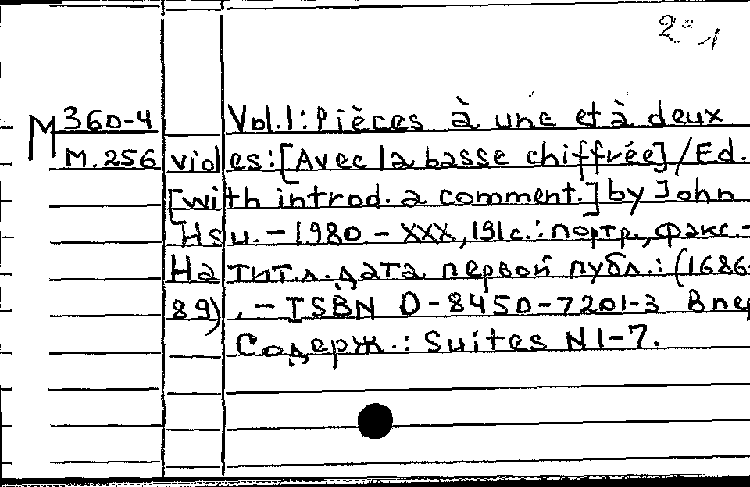 2º 1
М 360-4 Vol.1: Pièces à une et à deux
М.256 violes: [Avec la basse chiffrée] / Ed.
[with introd. a comment.] by John
Hsu. - 1980. - XXX, 191 с.: портр., факс. -
На тит.л. дата первой публ.: (1686-
89). - ISBN 0-8450-7201-3
Содерж.: Suites N 1-7.